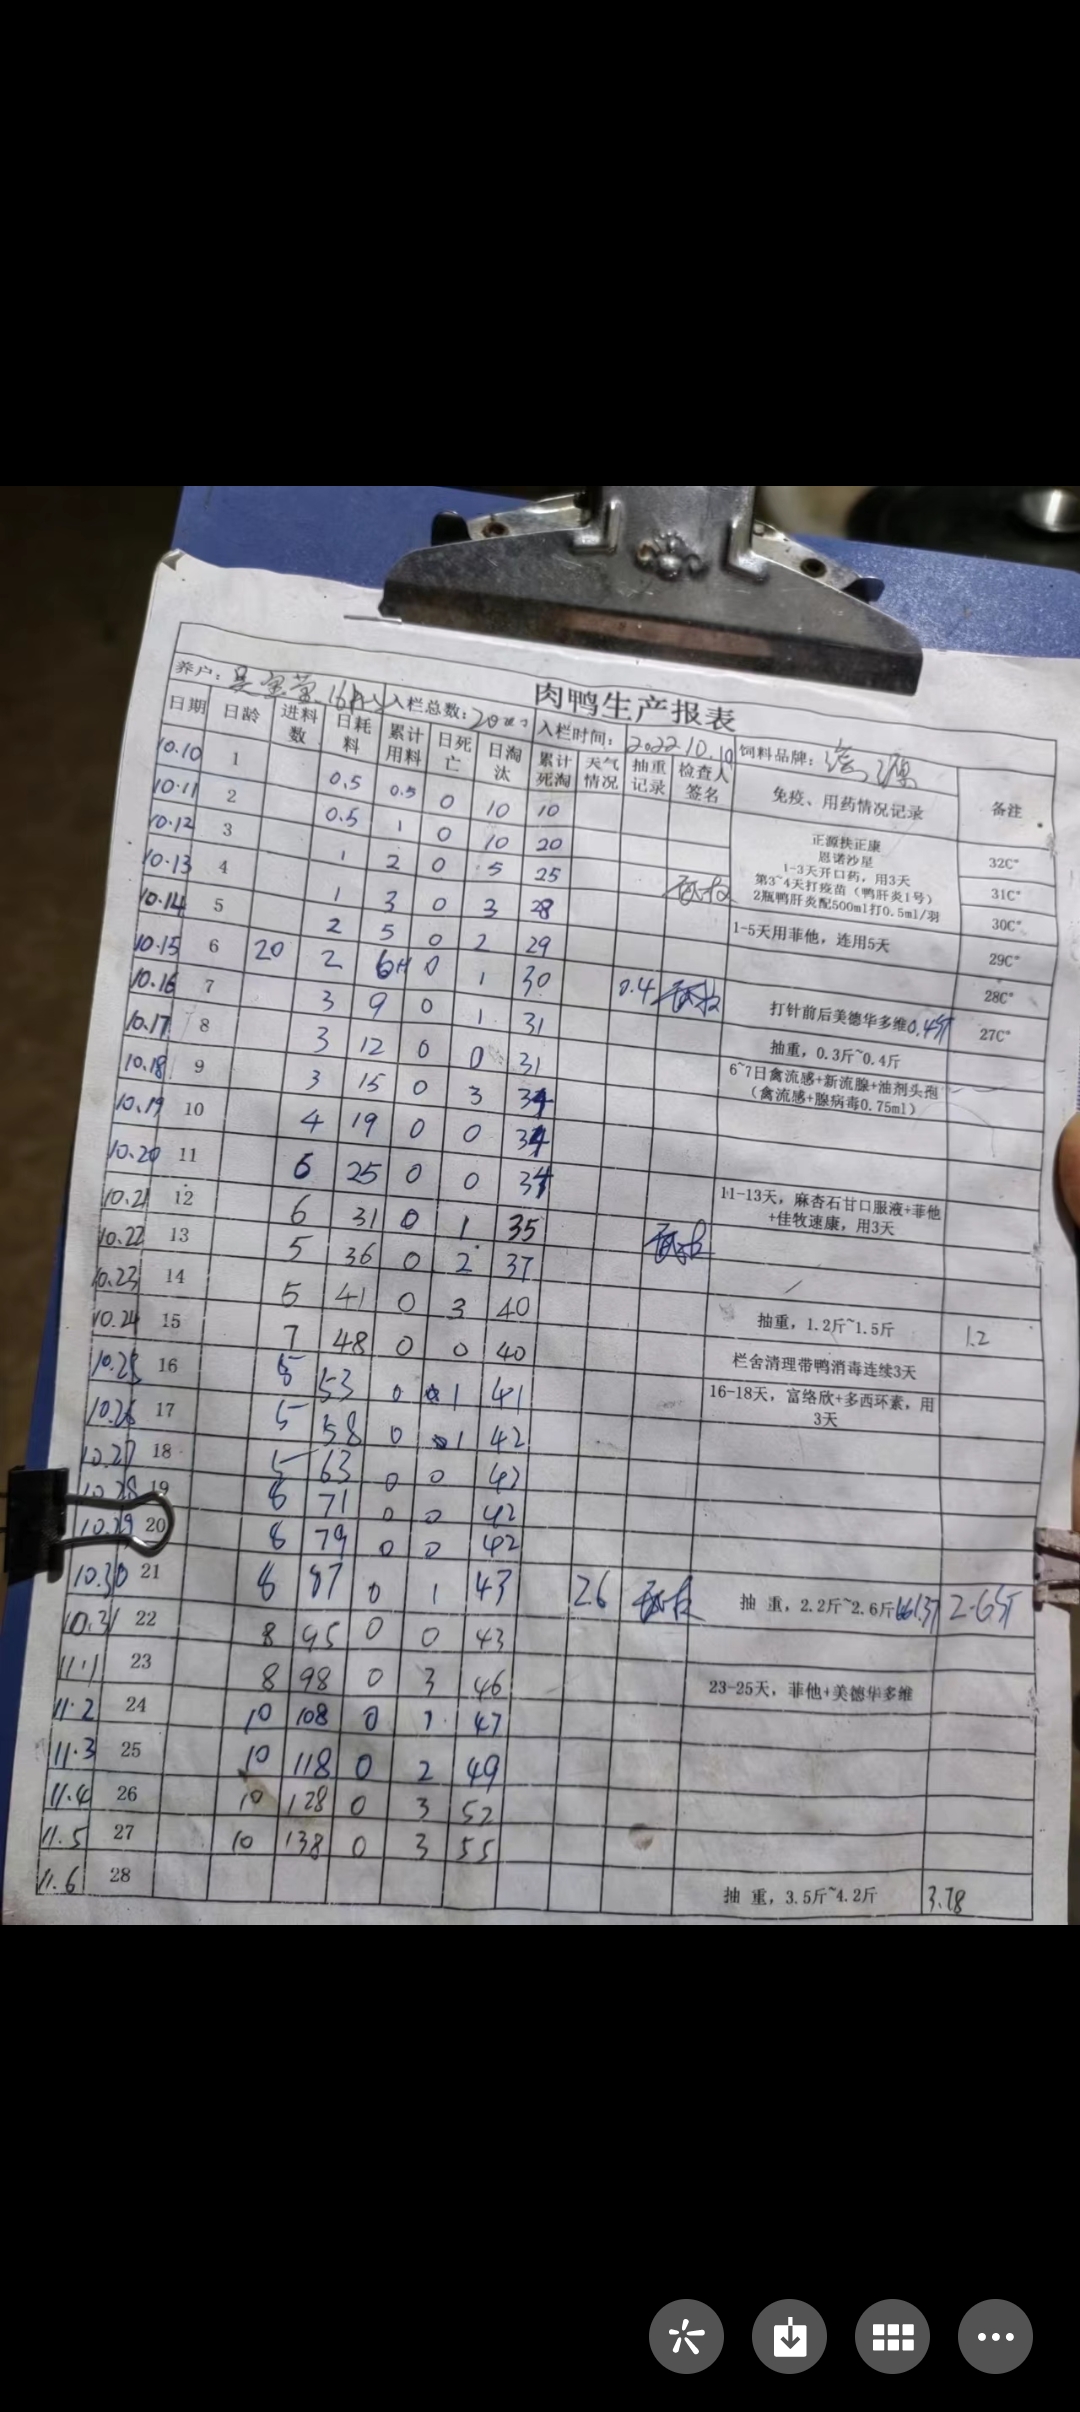 肉鸭生产报表
养户： 入栏总数： 入栏时间：2022.10.10 饲料品牌：
日期 日龄 进料数 日耗料 累计用料 日死亡 日淘汰 累计死淘 天气情况 抽重记录 检查人签名 免疫、用药情况记录 备注
10.10 1 0.5 0.5 0 10 10 正源扶正康 32C°
10.11 2 0.5 1 0 10 20 恩诺沙星
10.12 3 1 2 0 5 25 1-3天开口药，用3天 31C°
10.13 4 1 3 0 3 28 第3~4天打疫苗（鸭肝炎1号） 30C°
2瓶鸭肝炎配500ml打0.5ml/羽
10.14 5 2 5 0 2 29 1-5天用菲他，连用5天 29C°
10.15 6 20 2 0 1 30 28C°
10.16 7 3 9 0 1 31 0.4 打针前后美德华多维0.4斤 27C°
10.17 8 3 12 0 0 31 抽重，0.3斤~0.4斤
10.18 9 3 15 0 3 34 6~7日禽流感+新流腺+油剂头孢
（禽流感+腺病毒0.75ml）
10.19 10 4 19 0 0 34
10.20 11 6 25 0 0 34
10.21 12 6 31 0 1 35 11-13天，麻杏石甘口服液+菲他
+佳牧速康，用3天
10.22 13 5 36 0 2 37
10.23 14 5 41 0 3 40
10.24 15 7 48 0 0 40 抽重，1.2斤~1.5斤 1.2
10.25 16 5 53 0 1 41 栏舍清理带鸭消毒连续3天
10.26 17 5 58 0 1 42 16-18天，富络欣+多西环素，用
3天
10.27 18 5 63 0 0 42
10.28 19 8 71 0 0 42
10.29 20 8 79 0 0 42
10.30 21 8 87 0 1 43 2.6 抽 重，2.2斤~2.6斤 2.6斤
10.31 22 8 95 0 0 43
11.1 23 8 98 0 3 46 23-25天，菲他+美德华多维
11.2 24 10 108 0 1 47
11.3 25 10 118 0 2 49
11.4 26 10 128 0 3 52
11.5 27 10 138 0 3 55
11.6 28 抽 重，3.5斤~4.2斤 3.78